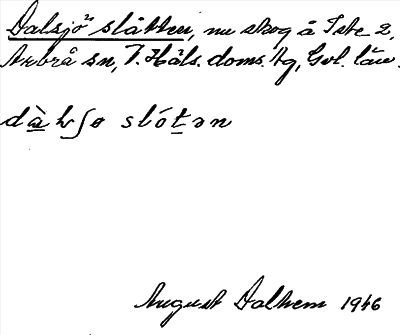 Dalsjöslåtten, nu skog å Iste 2,
Arbrå sn, V. Häls. doms. tg, Gvl. län.
slótən
August Dalhem 1946